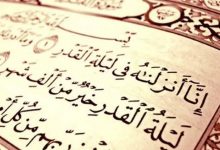 بِسْمِ
إِنَّا أَنزَلْنَٰهُ فِى لَيْلَةِ ٱلْقَدْرِ ١
لَيْلَةُ ٱلْقَدْرِ خَيْرٌ مِّنْ أَلْفِ شَهْرٍ
رَبِّهِم مِّن كُلِّ